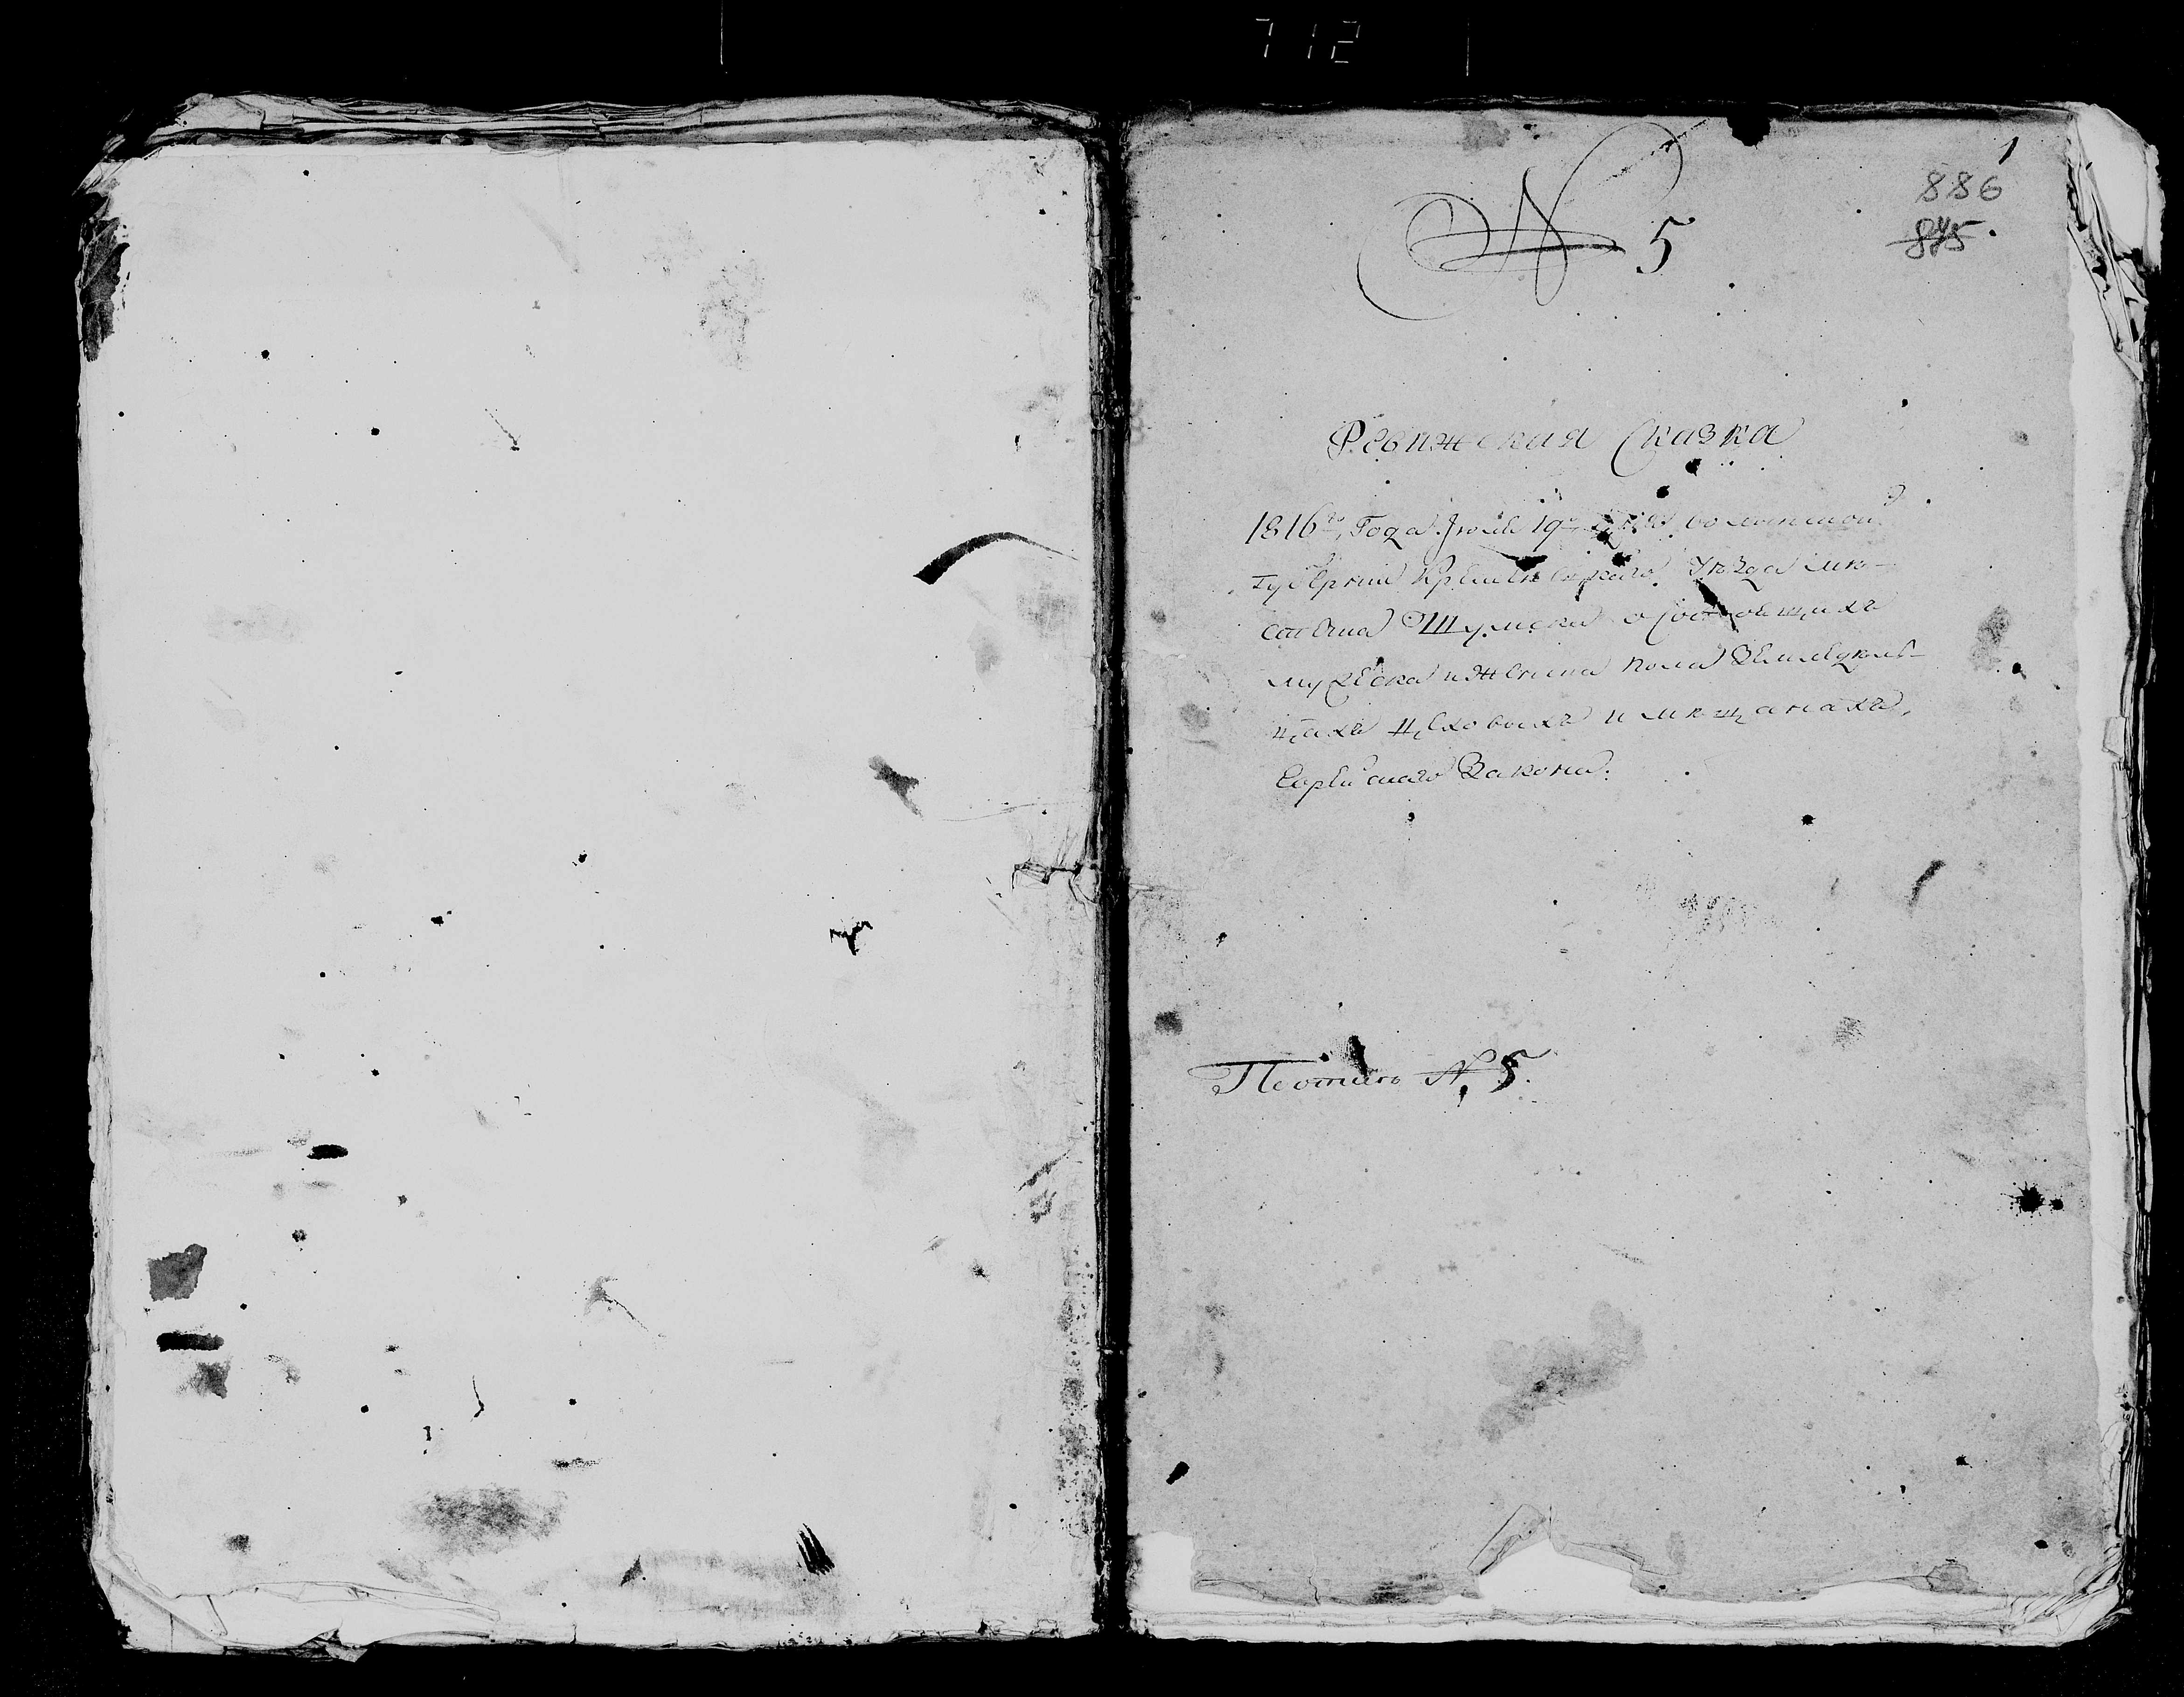 712
1
886
845.
№ 5
Ревижская Сказка
1816го, Года Июля 19го дня, волынской
губернии Кременецкаго Уезда ме-
стечка Шумска о Состоящихъ
мужеска и женска пола Земледель-
цахъ цеховыхъ и мещанахъ,
Еврейскаго Закона:
№ 5.